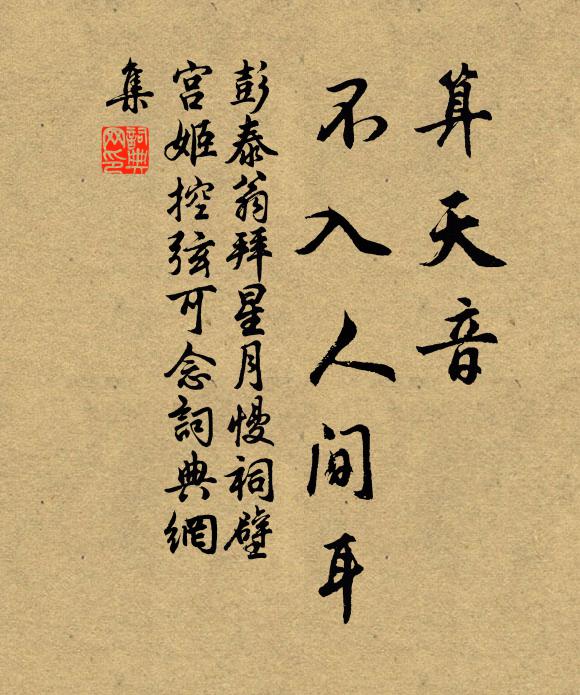 算天音
不入人間耳
彭泰翁拜星月慢祠壁
宫姬控弦可念詞典網
集
詞典
网印